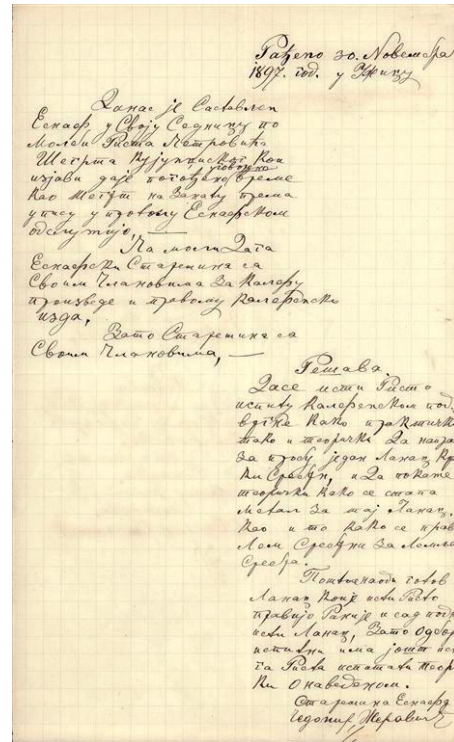 Рађено 30. Новембра
1897. год. у Ужицу
Данас је Саставлен
Еснаф у Своју Седницу по
Молби Риста Петровића
Шегрта Кујунџиског Кои
изјави даје погођено уговорно време
Као Шегрт на Занату према
упису у првому Еснафском
одслужијо, —
Па моли Дага
Еснафски Старешина са
Своим Члановима За Калфу
произведе и правому Калфенско
изда,
Зато Старешина са
Своим Члановима, —
Решава.
Дасе исти Ристо
испиту Калфенском под
вргне Како практички
тако и теорички Да направи
За пробу један Ланац
Ки Сребрн, и Да покаже
теорички Како се стапа
Метал За тај Ланац,
Као и то Како се прав
Лем Сребрни За
Сребра.
готов
Ланац Које исти Ристо
правијо Раније и сад под
исти Ланац, Зато Одбор
испитни има јошт ис
та Риста испитати Теор
Ки О наведеном.
Старешина Еснафа